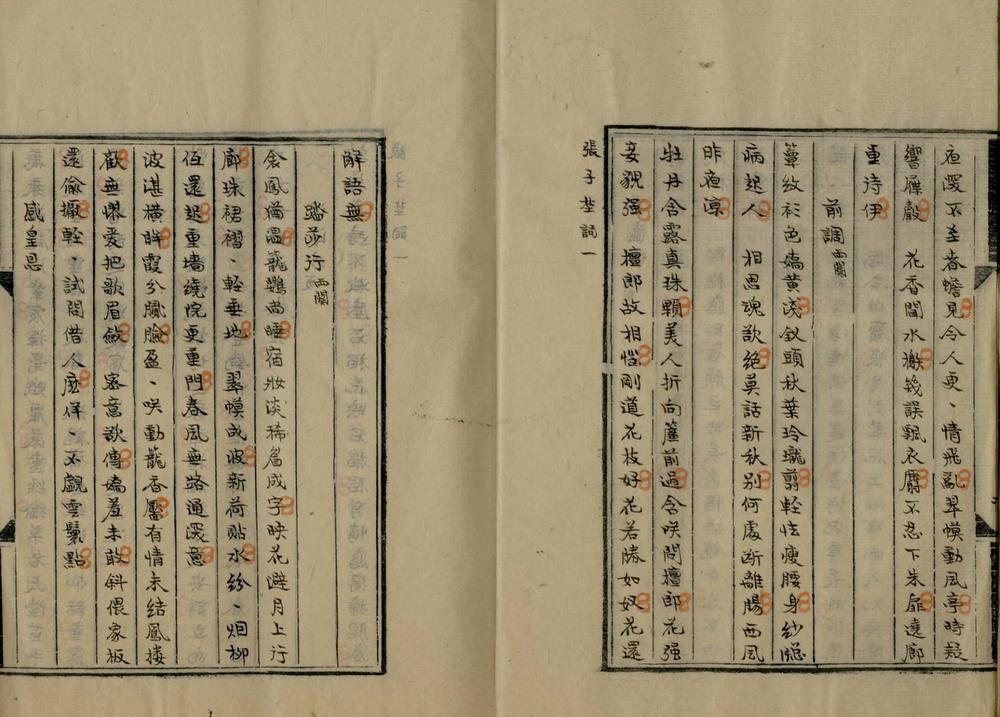 夜深不至春蟾見令人更、情飛亂翠幙動風亭時疑
響屧聲　花香閒水榭幾誤飄衣麝不忍下朱扉遶廊
重待伊
前調西閣
簟紋衫色嬌黃淺釵頭秋葉玲瓏翦輕怯瘦腰身紗牕
病起人　相思魂欲絕莫話新秋別何處斷離腸西風
昨夜涼
牡丹含露真珠顆美人折向簾前過含咲問檀郎花强
妾貌强　檀郎故相惱剛道花枝好花若勝如奴花還
張子埜詞一
解語無
踏莎行西閣
衾鳳猶溫籠鸚尚睡宿妝淡稀眉成字映花避月上行
廊珠裙褶、輕垂地　翠幙成波新荷貼水紛、烟柳
低還起重墻繞院更重門春風無路通深意
波湛橫眸霞分膩臉盈、咲動籠香靨有情未結鳳樓
歡無憀愛把歌眉斂　密意欲傳嬌羞未敢斜偎象板
還偷攝輕、試問借人麽佯、不覷雲鬟點
感皇恩